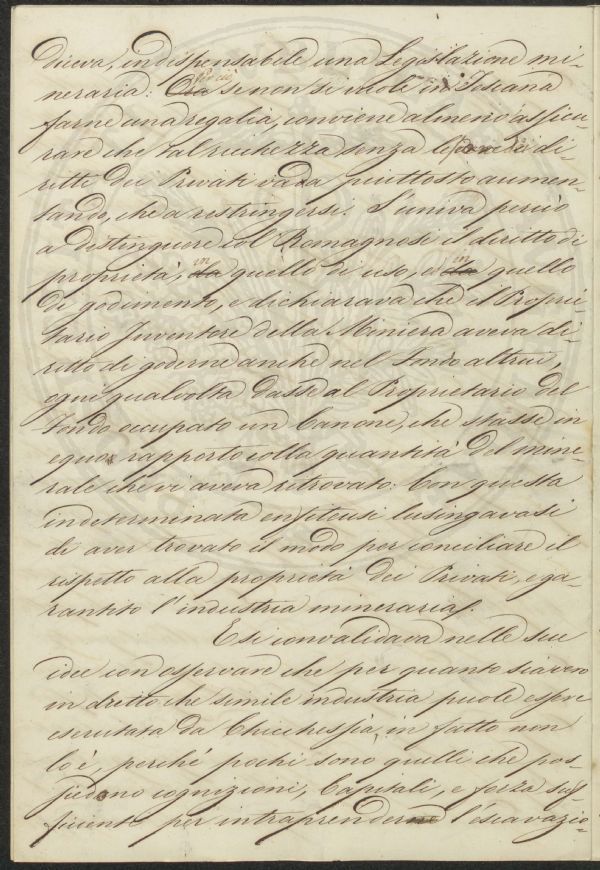 diceva, indispensabile una Legislazione mi-
neraria: Ora se non si vuole in Toscana
farne una regalia, conviene almeno assicu-
rare che tal ricchezza senza ledere i di-
ritti dei Privati vada piuttosto aumen-
tando, che a restringersi. S'univa perciò
a distinguere col Romagnosi il diritto di
proprietà, in quello di uso, ed in quello
di godimento, e dichiarava che il Proprie-
tario Inventore della Miniera aveva di-
ritto di goderne anche nel Fondo altrui,
ogni qualvolta dasse al Proprietario del
Fondo occupato un Canone, che stasse in
equo rapporto colla quantità del mine-
rale che vi aveva ritrovato. Con questa
indeterminata enfiteusi lusingavasi
di aver trovato il modo per conciliare il
rispetto alla proprietà dei Privati, e ga-
rantito l'industria mineraria.
E si convalidava nelle sue
idee con osservare che per quanto sia vero
in dretto che simile industria puole essere
esercitata da Chicchessia, in fatto non
lo è, perché pochi sono quelli che pos-
siedono cognizioni, Capitali, e forza suf-
ficiente per intraprendere l'escavazio-